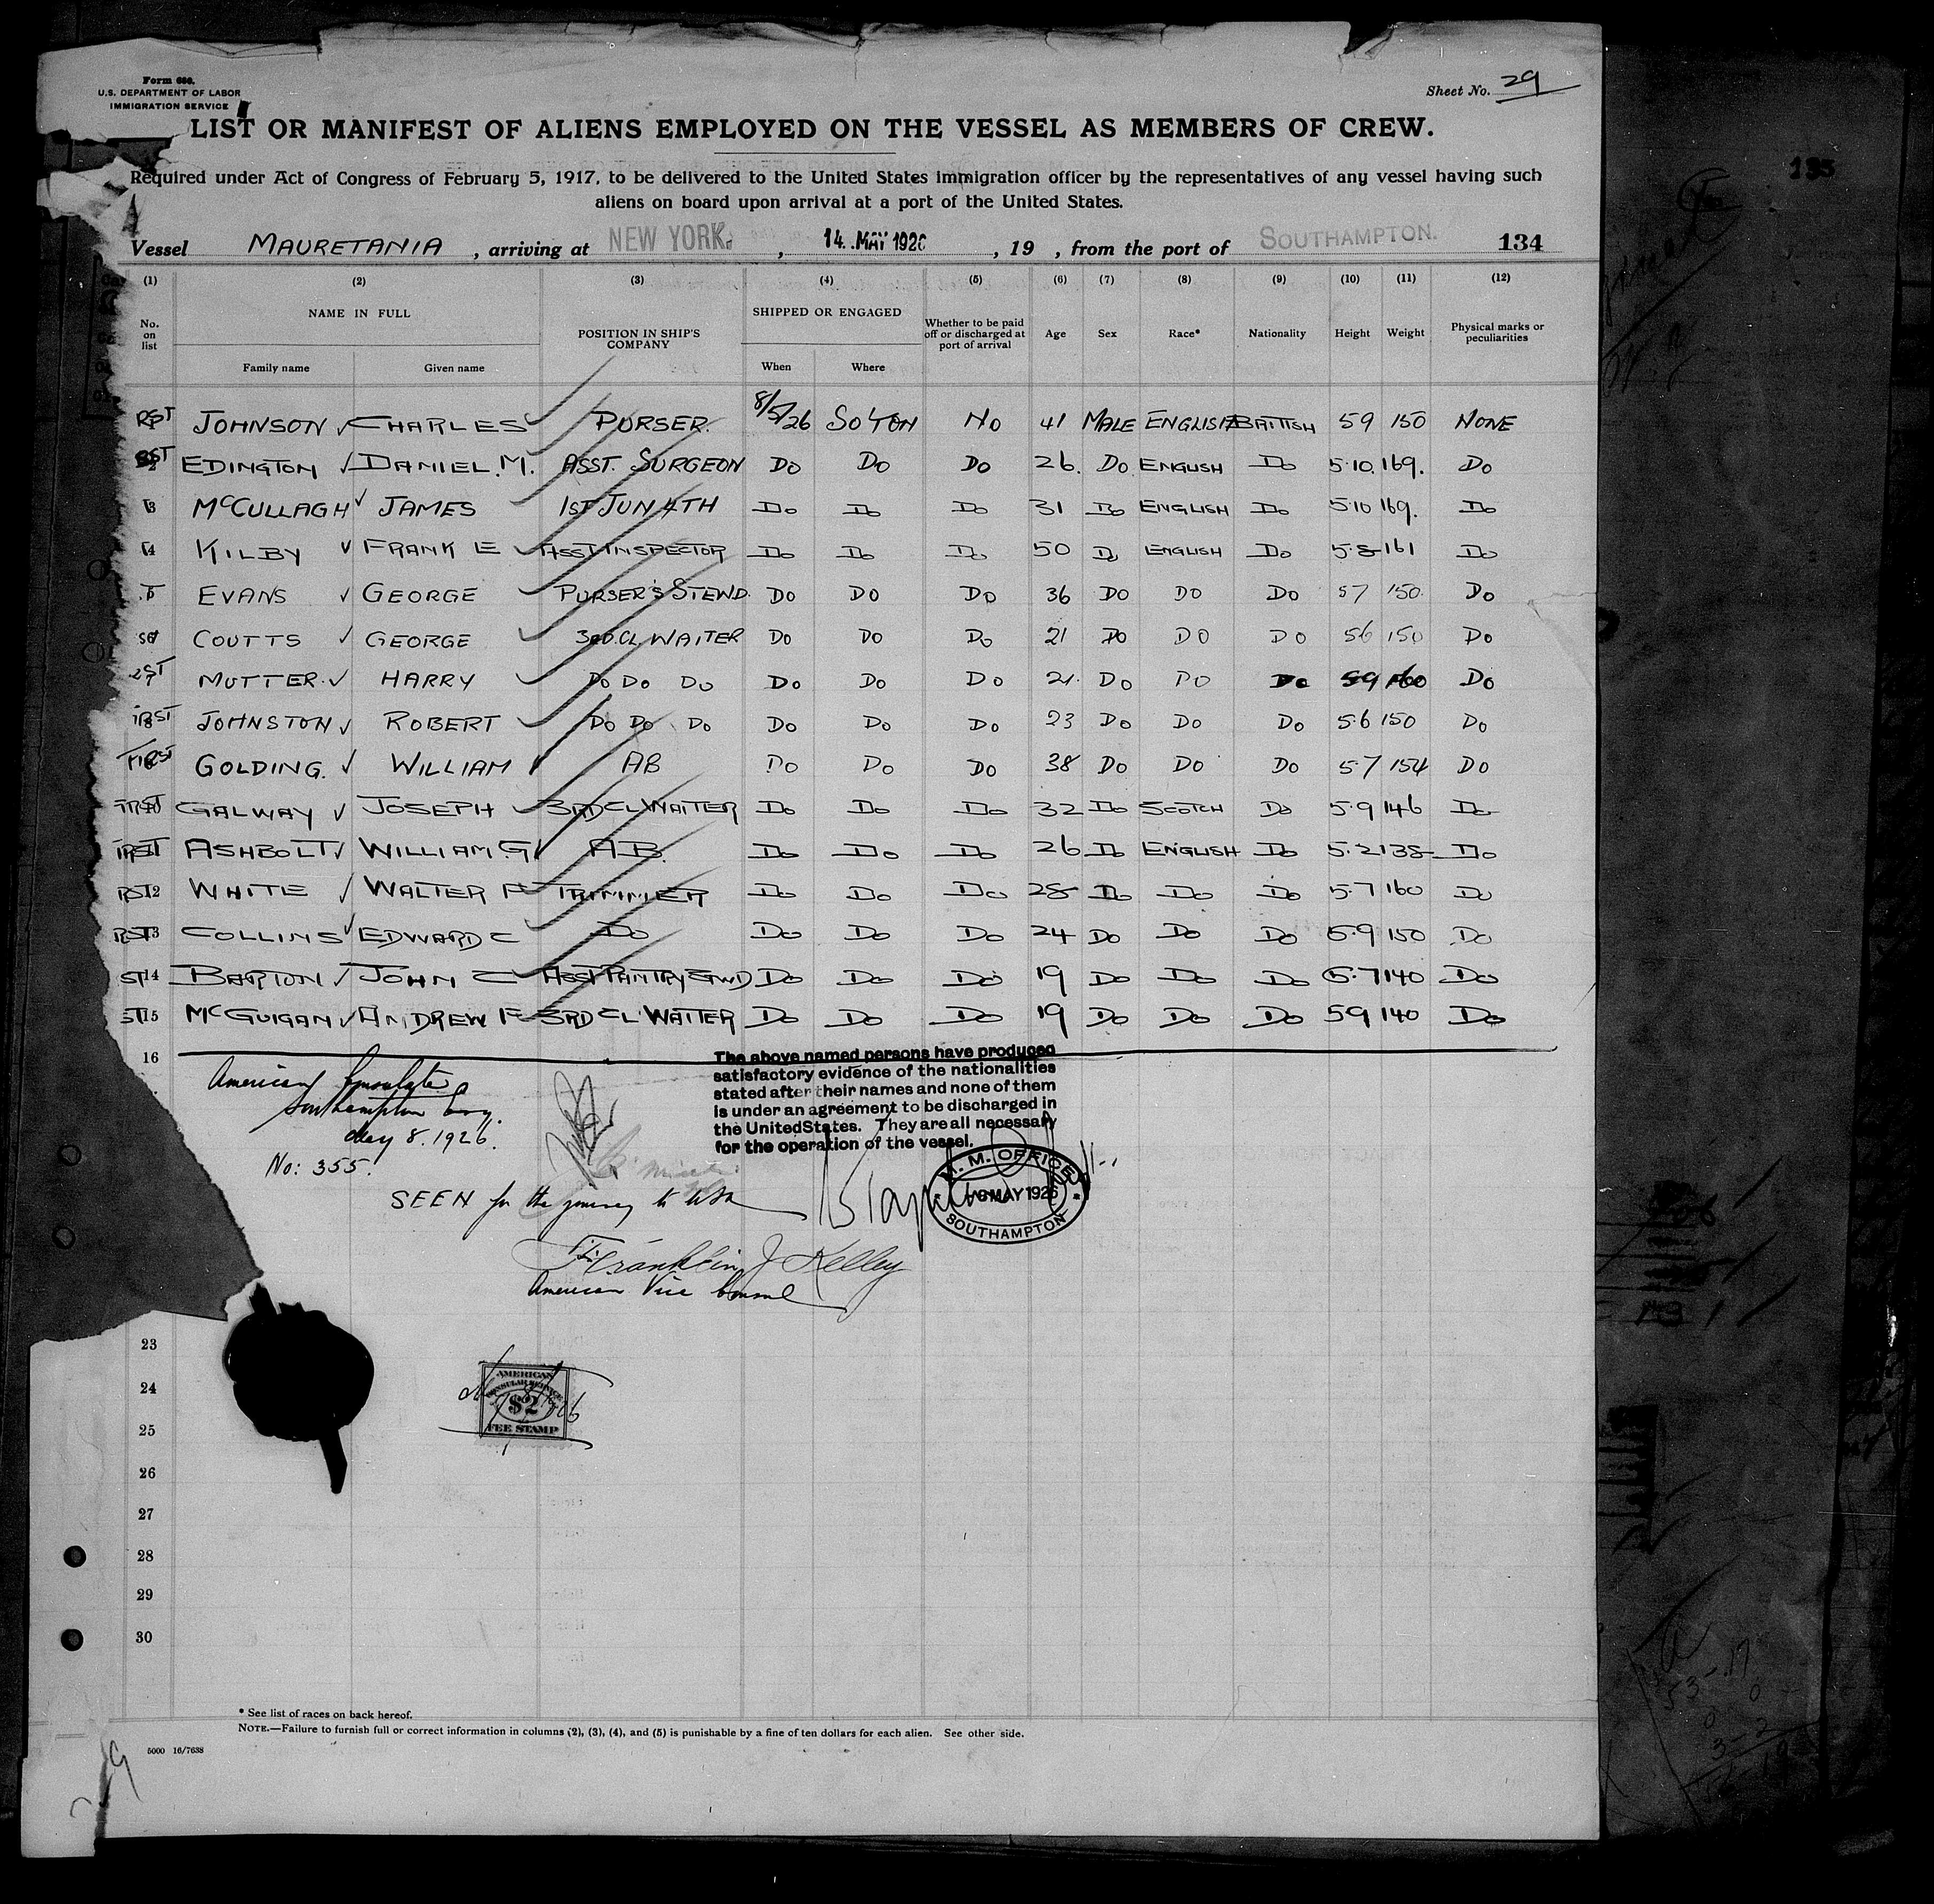 Form 686.
U.S. DEPARTMENT OF LABOR
IMMIGRATION SERVICE
Sheet No. 29
LIST OR MANIFEST OF ALIENS EMPLOYED ON THE VESSEL AS MEMBERS OF CREW.
Required under Act of Congress of February 5, 1917, to be delivered to the United States immigration officer by the representatives of any vessel having such
aliens on board upon arrival at a port of the United States.
Vessel MAURETANIA, arriving at NEW YORK, 14 MAY 1926, 19 , from the port of SOUTHAMPTON. 134
(1) (2) (3) (4) (5) (6) (7) (8) (9) (10) (11) (12)
No. on list NAME IN FULL POSITION IN SHIP'S COMPANY SHIPPED OR ENGAGED Whether to be paid off or discharged at port of arrival Age Sex Race* Nationality Height Weight Physical marks or peculiarities
Family name Given name When Where
JOHNSON CHARLES PURSER. 8/5/26 SO'TON NO 41 MALE ENGLISH BRITISH 59 150 NONE
EDINGTON DANIEL. M. ASST. SURGEON DO DO DO 26. DO ENGLISH DO 5.10. 169. DO
3 McCULLAGH JAMES 1ST JUN 4TH DO DO DO 31 DO ENGLISH DO 5.10 169. DO
4 KILBY FRANK E ASST INSPECTOR DO DO DO 50 DO ENGLISH DO 5.8 161 DO
5 EVANS GEORGE PURSER'S STEWD. DO DO DO 36 DO DO DO 57 150. DO
6 COUTTS GEORGE 3RD.CL. WAITER DO DO DO 21 DO DO DO 56 150 DO
7 MUTTER. HARRY DO DO DO DO DO DO 21. DO DO DO 59 160 DO
8 JOHNSTON ROBERT DO DO DO DO DO DO 23 DO DO DO 5.6 150 DO
GOLDING. WILLIAM AB DO DO DO 38 DO DO DO 5.7 154 DO
10 GALWAY JOSEPH 3RD CL WAITER DO DO DO 32 DO SCOTCH DO 5.9 146 DO
11 ASHBOLT WILLIAM. G A B. DO DO DO 26 DO ENGLISH DO 5.2 138 DO
12 WHITE WALTER F TRIMMER DO DO DO 28 DO DO DO 5.7 160 DO
13 COLLINS EDWARD C DO DO DO DO 24 DO DO DO 5.9 150 DO
14 BARTON JOHN C ASST PANTRY STWD DO DO DO 19 DO DO DO 5.7 140 DO
15 McGUIGAN ANDREW F 3RD CL WAITER DO DO DO 19 DO DO DO 59 140 DO
16
The above named persons have produced
satisfactory evidence of the nationalities
stated after their names and none of them
is under an agreement to be discharged in
the United States. They are all necessary
for the operation of the vessel.
American Consulate
Southampton Eng.
May 8. 1926.
No: 355.
SEEN for the journey to USA
M. M. OFFICE
8 MAY 1926
SOUTHAMPTON
Franklin J Kelley
American Vice Consul
23
24
25
26
27
28
29
30
AMERICAN
CONSULAR SERVICE
$2
FEE STAMP
* See list of races on back hereof.
NOTE.—Failure to furnish full or correct information in columns (2), (3), (4), and (5) is punishable by a fine of ten dollars for each alien. See other side.
5000 16/7638
29
135